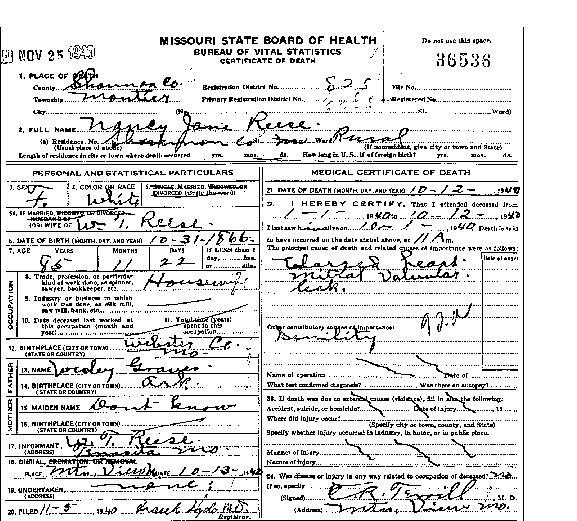 MISSOURI STATE BOARD OF HEALTH
BUREAU OF VITAL STATISTICS
CERTIFICATE OF DEATH
Do not use this space.
NOV 25 1940
36536
1. PLACE OF DEATH
County Shannon Co. Registration District No. 825 File No.
Township Montier Primary Registration District No. Registered No.
City (No. St. Ward)
2. FULL NAME Nancy Jane Reese
(a) Residence. No. Shannon Co Mo Ward Rural
(Usual place of abode) (If nonresident, give city or town and State)
Length of residence in city or town where death occurred yrs. mos. ds. How long in U. S., if of foreign birth? yrs. mos. ds.
PERSONAL AND STATISTICAL PARTICULARS
3. SEX F. 4. COLOR OR RACE White 5. SINGLE, MARRIED, WIDOWED OR DIVORCED (write the word)
5A. IF MARRIED, WIDOWED OR DIVORCED
(OR) WIFE OF W. T. Reese
6. DATE OF BIRTH (MONTH, DAY, AND YEAR) 10-31-1866
7. AGE YEARS MONTHS 11 DAYS 22 If LESS than 1 day, hrs. or min.
OCCUPATION
8. Trade, profession, or particular kind of work done, as spinner, sawyer, bookkeeper, etc. Housewife
9. Industry or business in which work was done, as silk mill, saw mill, bank, etc.
10. Date deceased last worked at this occupation (month and year)
11. Total time (years) spent in this occupation
12. BIRTHPLACE (CITY OR TOWN) Webster Co.
(STATE OR COUNTRY) Mo
FATHER
13. NAME Wesley Graves
14. BIRTHPLACE (CITY OR TOWN) Ark.
(STATE OR COUNTRY)
MOTHER
15. MAIDEN NAME Dont Know
16. BIRTHPLACE (CITY OR TOWN)
(STATE OR COUNTRY)
17. INFORMANT W. T. Reese
(ADDRESS) Mo
18. BURIAL, CREMATION, OR REMOVAL
PLACE Mtn. View DATE 10-13-1940
19. UNDERTAKER none
(ADDRESS)
20. FILED 11-5 1940 Frank Hyde M.D.
Registrar
MEDICAL CERTIFICATE OF DEATH
21. DATE OF DEATH (MONTH, DAY, AND YEAR) 10-12-1940
22. I HEREBY CERTIFY, That I attended deceased from
1-1-1940 to 10-12-1940
I last saw h alive on 10-1-1940 Death is said
to have occurred on the date stated above, at 11 A m.
The principal cause of death and related causes of importance were as follows:
Date of onset
Enlarged Heart
Mitral Valvular
leak.
Other contributory causes of importance:
Senility
Name of operation Date of
What test confirmed diagnosis? Was there an autopsy?
23. If death was due to external causes (violence), fill in also the following:
Accident, suicide, or homicide? Date of injury 19
Where did injury occur?
(Specify city or town, county, and State)
Specify whether injury occurred in industry, in home, or in public place.
Manner of injury
Nature of injury
24. Was disease or injury in any way related to occupation of deceased? no
If so, specify
(Signed) M. D.
(Address) Mtn. View Mo.